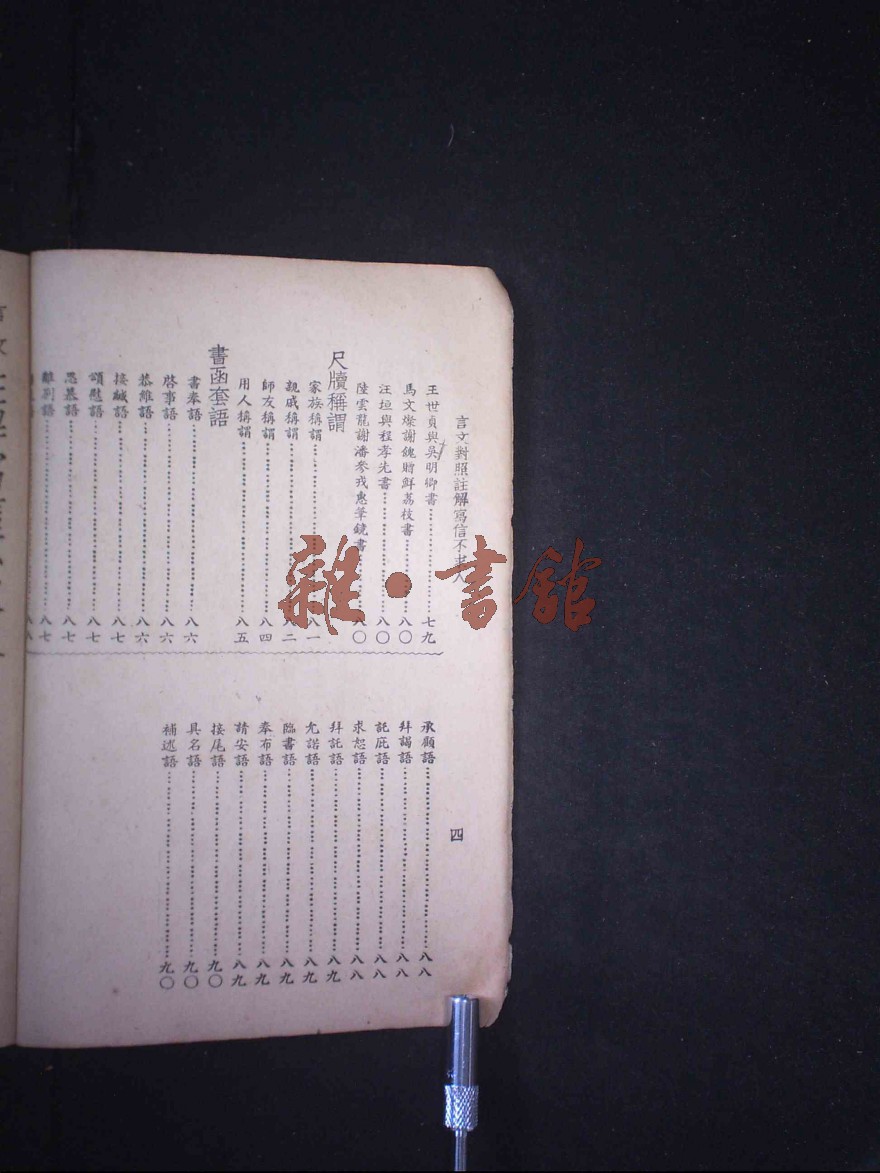 言文對照註解寫信不求人
四
王世貞與吳明卿書 七九
馬文燦謝魏贈鮮荔枝書 八〇
汪垣與程孝先書 八〇
陸雲龍謝潘參戎惠葦鏡書 八〇
尺牘稱謂
家族稱謂 八一
親戚稱謂 八二
師友稱謂 八四
用人稱謂 八五
書函套語
書奉語 八六
啓事語 八六
恭維語 八六
接緘語 八七
頌慰語 八七
思慕語 八七
離別語 八七
語 八八
承顧語 八八
拜謁語 八八
託庇語 八八
求恕語 八八
拜託語 八九
允諾語 八九
臨書語 八九
奉布語 八九
請安語 八九
接尾語 九〇
具名語 九〇
補述語 九〇
雜·書館